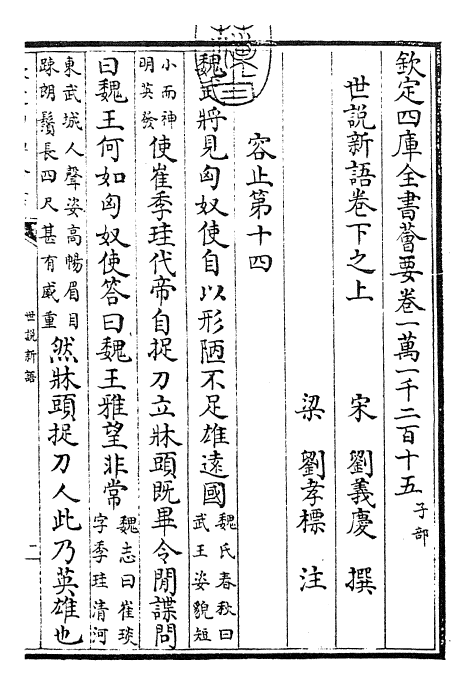 欽定四庫全書薈要卷一萬一千二百十五 子部
世說新語卷下之上
宋 劉義慶 撰
梁 劉孝標 注
容止第十四
魏武將見匈奴使自以形陋不足雄遠國 魏氏春秋曰
武王姿貌短
小而神
明英發 使崔季珪代帝自捉刀立牀頭既畢令間諜問
曰魏王何如匈奴使答曰魏王雅望非常 魏志曰崔琰
字季珪清河
東武城人聲姿高暢眉目
疎朗鬚長四尺甚有威重 然牀頭捉刀人此乃英雄也
世說新語
二